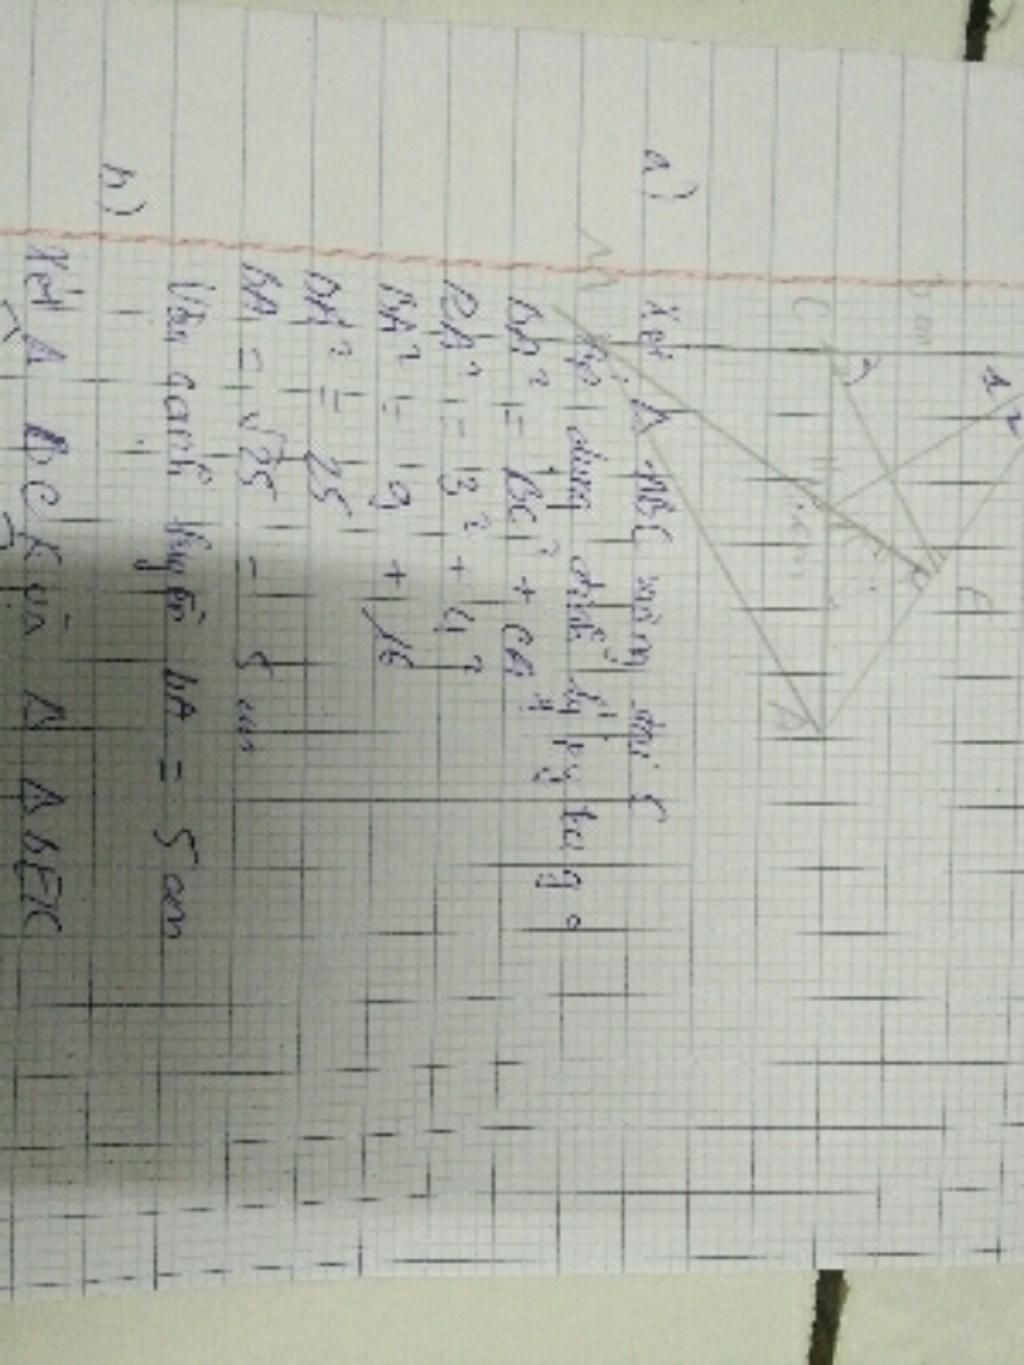 1 2
3
C
A
M
a) Xét Δ ABC vuông tại C
Áp dụng định lý py ta go
BA² = BC² + CA²
BA² = 3² + 4²
BA² = 9 + 16
BA² = 25
BA = √25 = 5 cm
Vậy cạnh huyền BA = 5 cm
b)
Xét Δ BCK và Δ BEK